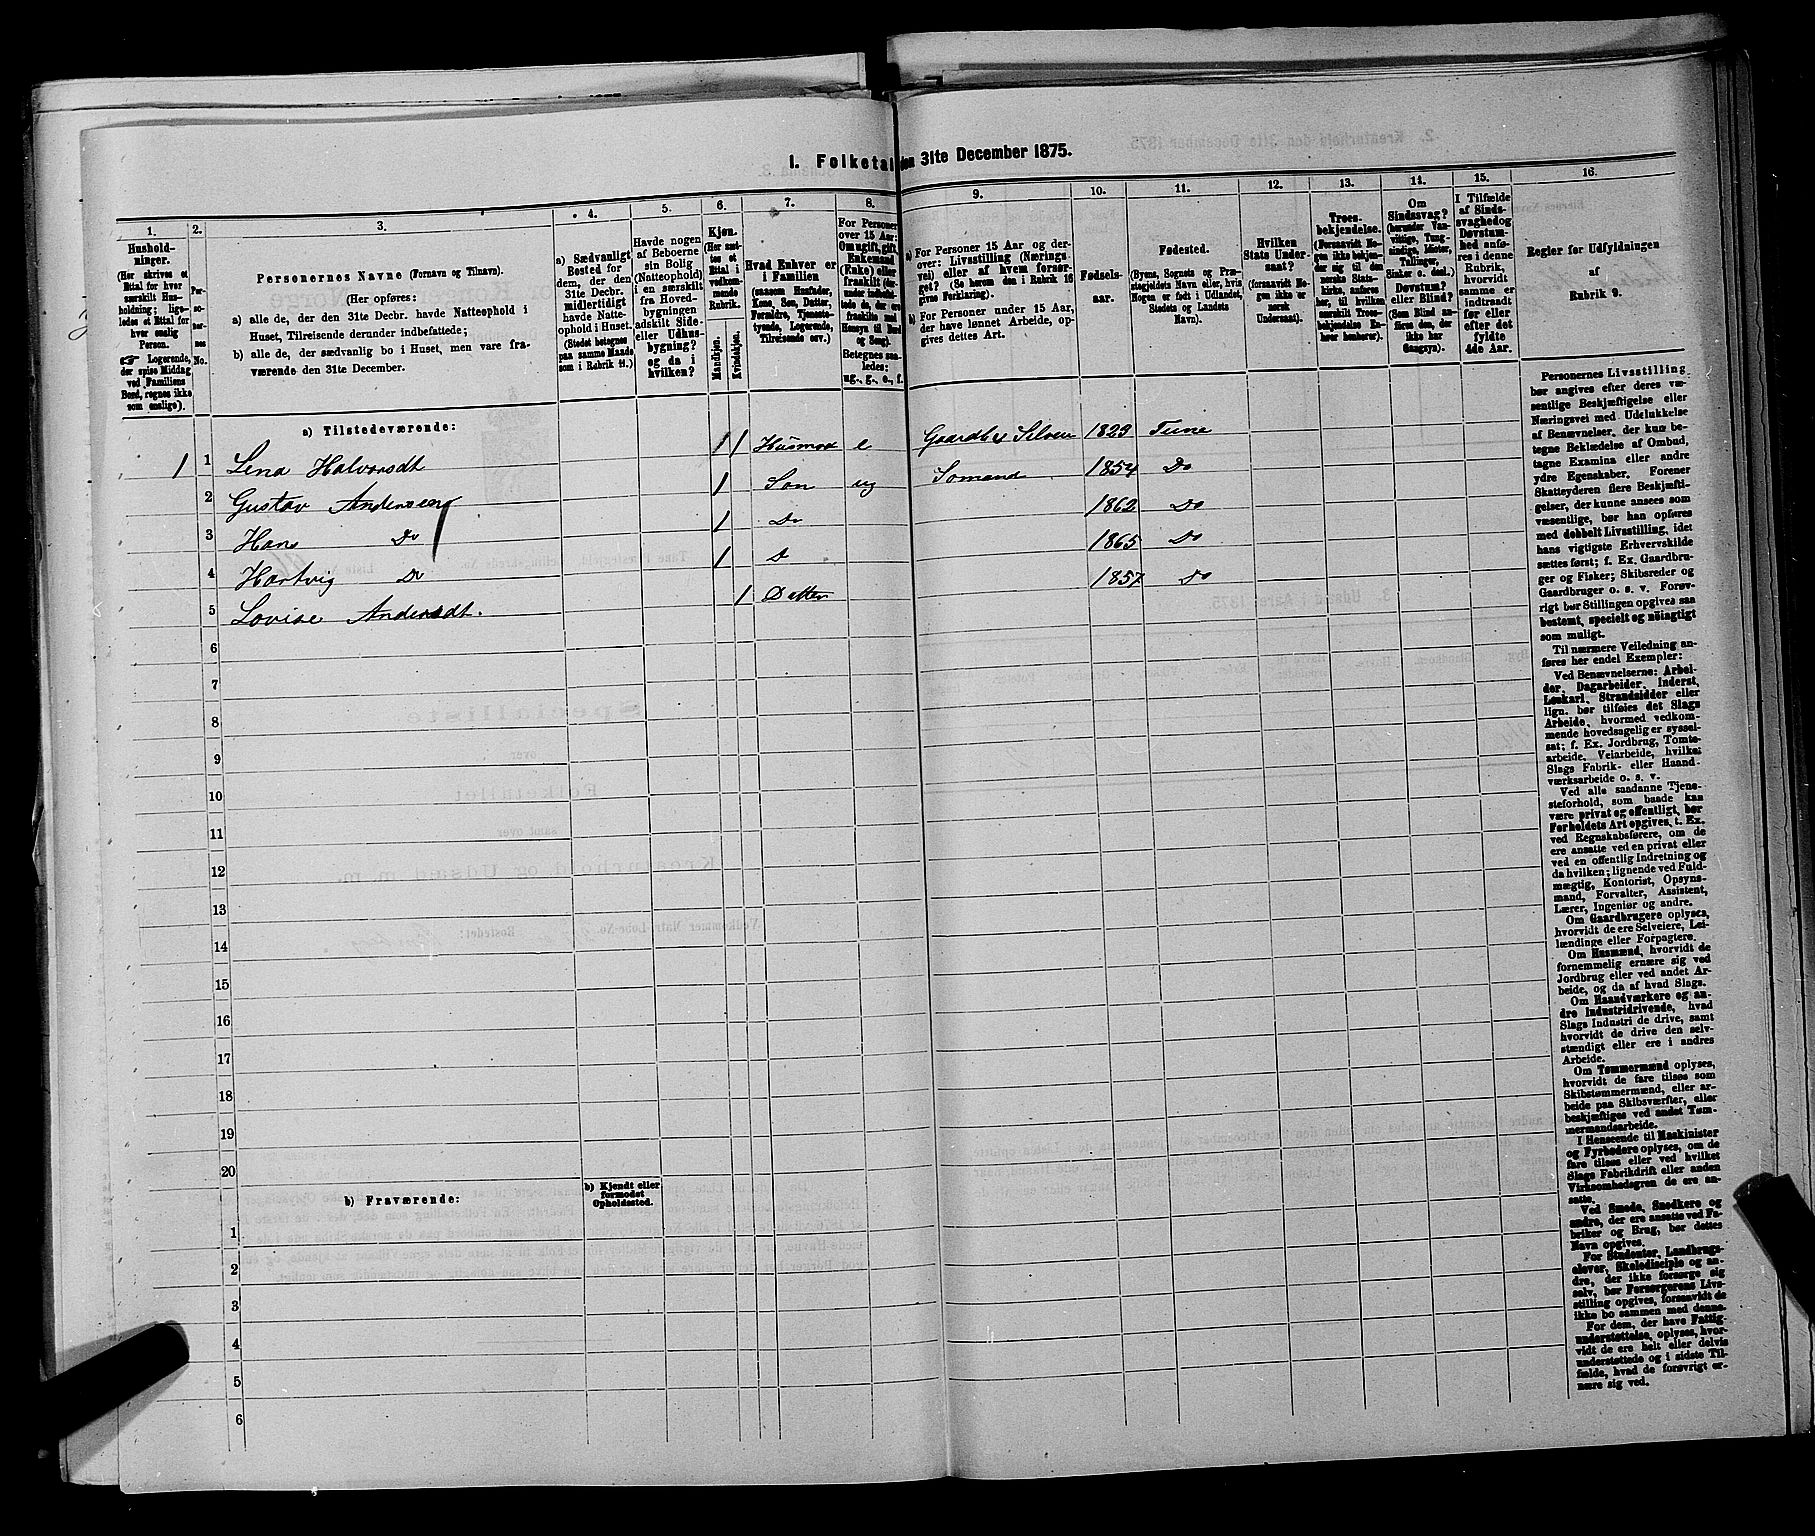 1. Folketal den 31te December 1875.
1.
Hushold-
ninger.
(Her skrives et
Ettal for hver
særskilt Hus-
holdning; lige-
ledes et Ettal for
hver enslig
Person.
☞ Logerende,
der spise Middag
ved Familiens
Bord, regnes ikke
som enslige).
2.
Per-
so-
ner-
nes
No.
3.
Personernes Navne (Fornavn og Tilnavn).
(Her opføres:
a) alle de, der den 31te Decbr. havde Natteophold i
Huset, Tilreisende derunder indbefattede;
b) alle de, der sædvanlig bo i Huset, men vare fra-
værende den 31te December.
4.
a) Sædvanligt
Bosted for
dem, der den
31te Decbr.
midlertidigt
havde Natte-
ophold i Huset.
(Stedet betegnes
paa samme Maade
som i Rubrik 11.)
5.
Havde nogen
af Beboerne
sin Bolig
(Natteophold)
i en særskilt
fra Hoved-
bygningen
adskilt Side-
eller Udhus-
bygning?
og da i
hvilken?
6.
Kjøn.
(Her sæt-
tes et
Ettal i
vedkom-
mende
Rubrik.
Mandkjøn.
Kvindekjøn.
7.
Hvad Enhver er
i Familien
(saasom Husfader,
Kone, Søn, Datter,
Forældre, Tjeneste-
tyende, Logerende,
Tilreisende osv.)
8.
For Personer
over 15 Aar:
Om ugift, gift,
Enkemand
(Enke) eller
fraskilt
Betegnes saa-
ledes:
ug., g., e., f.
9.
a) For Personer 15 Aar og der-
over: Livsstilling (Nærings-
vei) eller af hvem forsør-
get? (Se herom den i Rubrik 16
givne Forklaring).
b) For Personer under 15 Aar,
der have lønnet Arbeide, op-
gives dettes Art.
10.
Fødsels-
aar.
11.
Fødested.
(Byens, Sognets og Præ-
stegjeldets Navn eller, hvis
Nogen er født i Udlandet,
Stedets og Landets
Navn).
12.
Hvilken
Stats Under-
saat?
(forsaavidt No-
gen ikke er
norsk
Undersaat).
13.
Troes-
bekjendelse.
(Forsaavidt No-
gen ikke bekjen-
der sig til den
norske Stats-
kirke, anføres
her, til hvilken
særskilt Troes-
bekjendelse En-
hver henhører).
14.
Om
Sindssvag?
(herunder Van-
vittige, Tung-
sindige, Idioter,
Tullinger,
Sinker o. desl.)
Døvstum?
eller Blind?
(Som Blind an-
føres den, der
ikke har
Gangsyn).
15.
I Tilfælde
af Sinds-
svaghed og
Døvstum-
hed anfø-
res i denne
Rubrik,
hvorvidt
samme er
indtraadt
før eller
efter det
fyldte
4de Aar.
16.
Regler for Udfyldningen
af
Rubrik 9.
a) Tilstedeværende:
1 1 Lena Halvorsdt 1 1 Husmod e Gaardbr Selveier 1829 Tune
2 Gustav Andersen 1 Søn ug Sømand 1854 Do
3 Hans Do 1 Do 1862 Do
4 Hartvig Do 1 D 1865 Do
5 Lovise Andersdt. 1 Datter 1857 Do
6
7
8
9
10
11
12
13
14
15
16
17
18
19
20
b) Fraværende:
b) Kjendt eller
formodet
Opholdssted.
1
2
3
4
5
6
Personernes Livsstilling
bør angives efter deres væ-
sentlige Beskjæftigelse eller
Næringsvei med Udelukkelse
af Benævnelser, der kun be-
tegne Beklædelse af Ombud,
tagne Examina eller andre
ydre Egenskaber. Forener
Skatteyderen flere Beskjæfti-
gelser, der kunne ansees som
væsentlige, bør han opføres
med dobbelt Livsstilling, idet
hans vigtigste Erhvervskilde
sættes først; f. Ex. Gaardbru-
ger og Fisker; Skibsreder og
Gaardbruger o. s. v. Forøv-
rigt bør Stillingen opgives saa
bestemt, specielt og nøiagtigt
som muligt.
Til nærmere Veiledning an-
føres her endel Exempler:
Ved Benævnelserne: Arbei-
der, Dagarbeider, Inderst,
Løskarl, Strandsidder eller
lign. bør tilføies det Slags
Arbeide, hvormed vedkom-
mende hovedsagelig er syssel-
sat; f. Ex. Jordbrug, Tomte-
arbeide, Veiarbeide, hvilket
Slags Fabrik- eller Haand-
værksarbeide o. s. v.
Ved alle saadanne Tjene-
steforhold, som baade kan
være privat og offentligt, bør
Forholdets Art opgives, t. Ex.
ved Regnskabsførere, om de
ere ansatte ved en privat eller
ved en offentlig Indretning og
da hvilken; lignende ved Fuld-
mægtig, Kontorist, Opsyns-
mand, Forvalter, Assistent,
Lærer, Ingeniør og andre.
Om Gaardbrugere oplyses,
hvorvidt de ere Selveiere, Lei-
lændinge eller Forpagtere.
Om Husmænd, hvorvidt de
fornemmelig ernære sig ved
Jordbrug eller ved andet Ar-
beide, og da af hvad Slags.
Om Haandværkere og an-
dre Industridrivende, hvad
Slags Industri de drive, samt
hvorvidt de drive den selv-
stændigt eller ere i andres
Arbeide.
Om Tømmermænd oplyses,
hvorvidt de fare tilsøs som
Skibstømmermænd, eller ar-
beide paa Skibsværfter, eller
beskjæftiges ved andet Tøm-
mermandsarbeide.
I Henseende til Maskinister
og Fyrbødere oplyses, om de
fare tilsøs eller ved hvilket
Slags Fabrikdrift eller anden
Virksomhedsgren de ere an-
satte.
Ved Smede, Snedkere og
andre, der ere ansatte ved Fa-
briker og Brug, bør dettes
Navn opgives.
For Studenter, Landbrugs-
elever, Skoledisciple og an-
dre, der ikke forsørge sig
selv, bør Forsørgerens Livs-
stilling opgives, forsaavidt de
ikke bo sammen med denne.
For dem, der have Fattig-
understøttelse, oplyses, hvor-
vidt de ere helt eller delvis
understøttede og i sidste Til-
fælde, hvad de forøvrigt er-
nære sig ved.